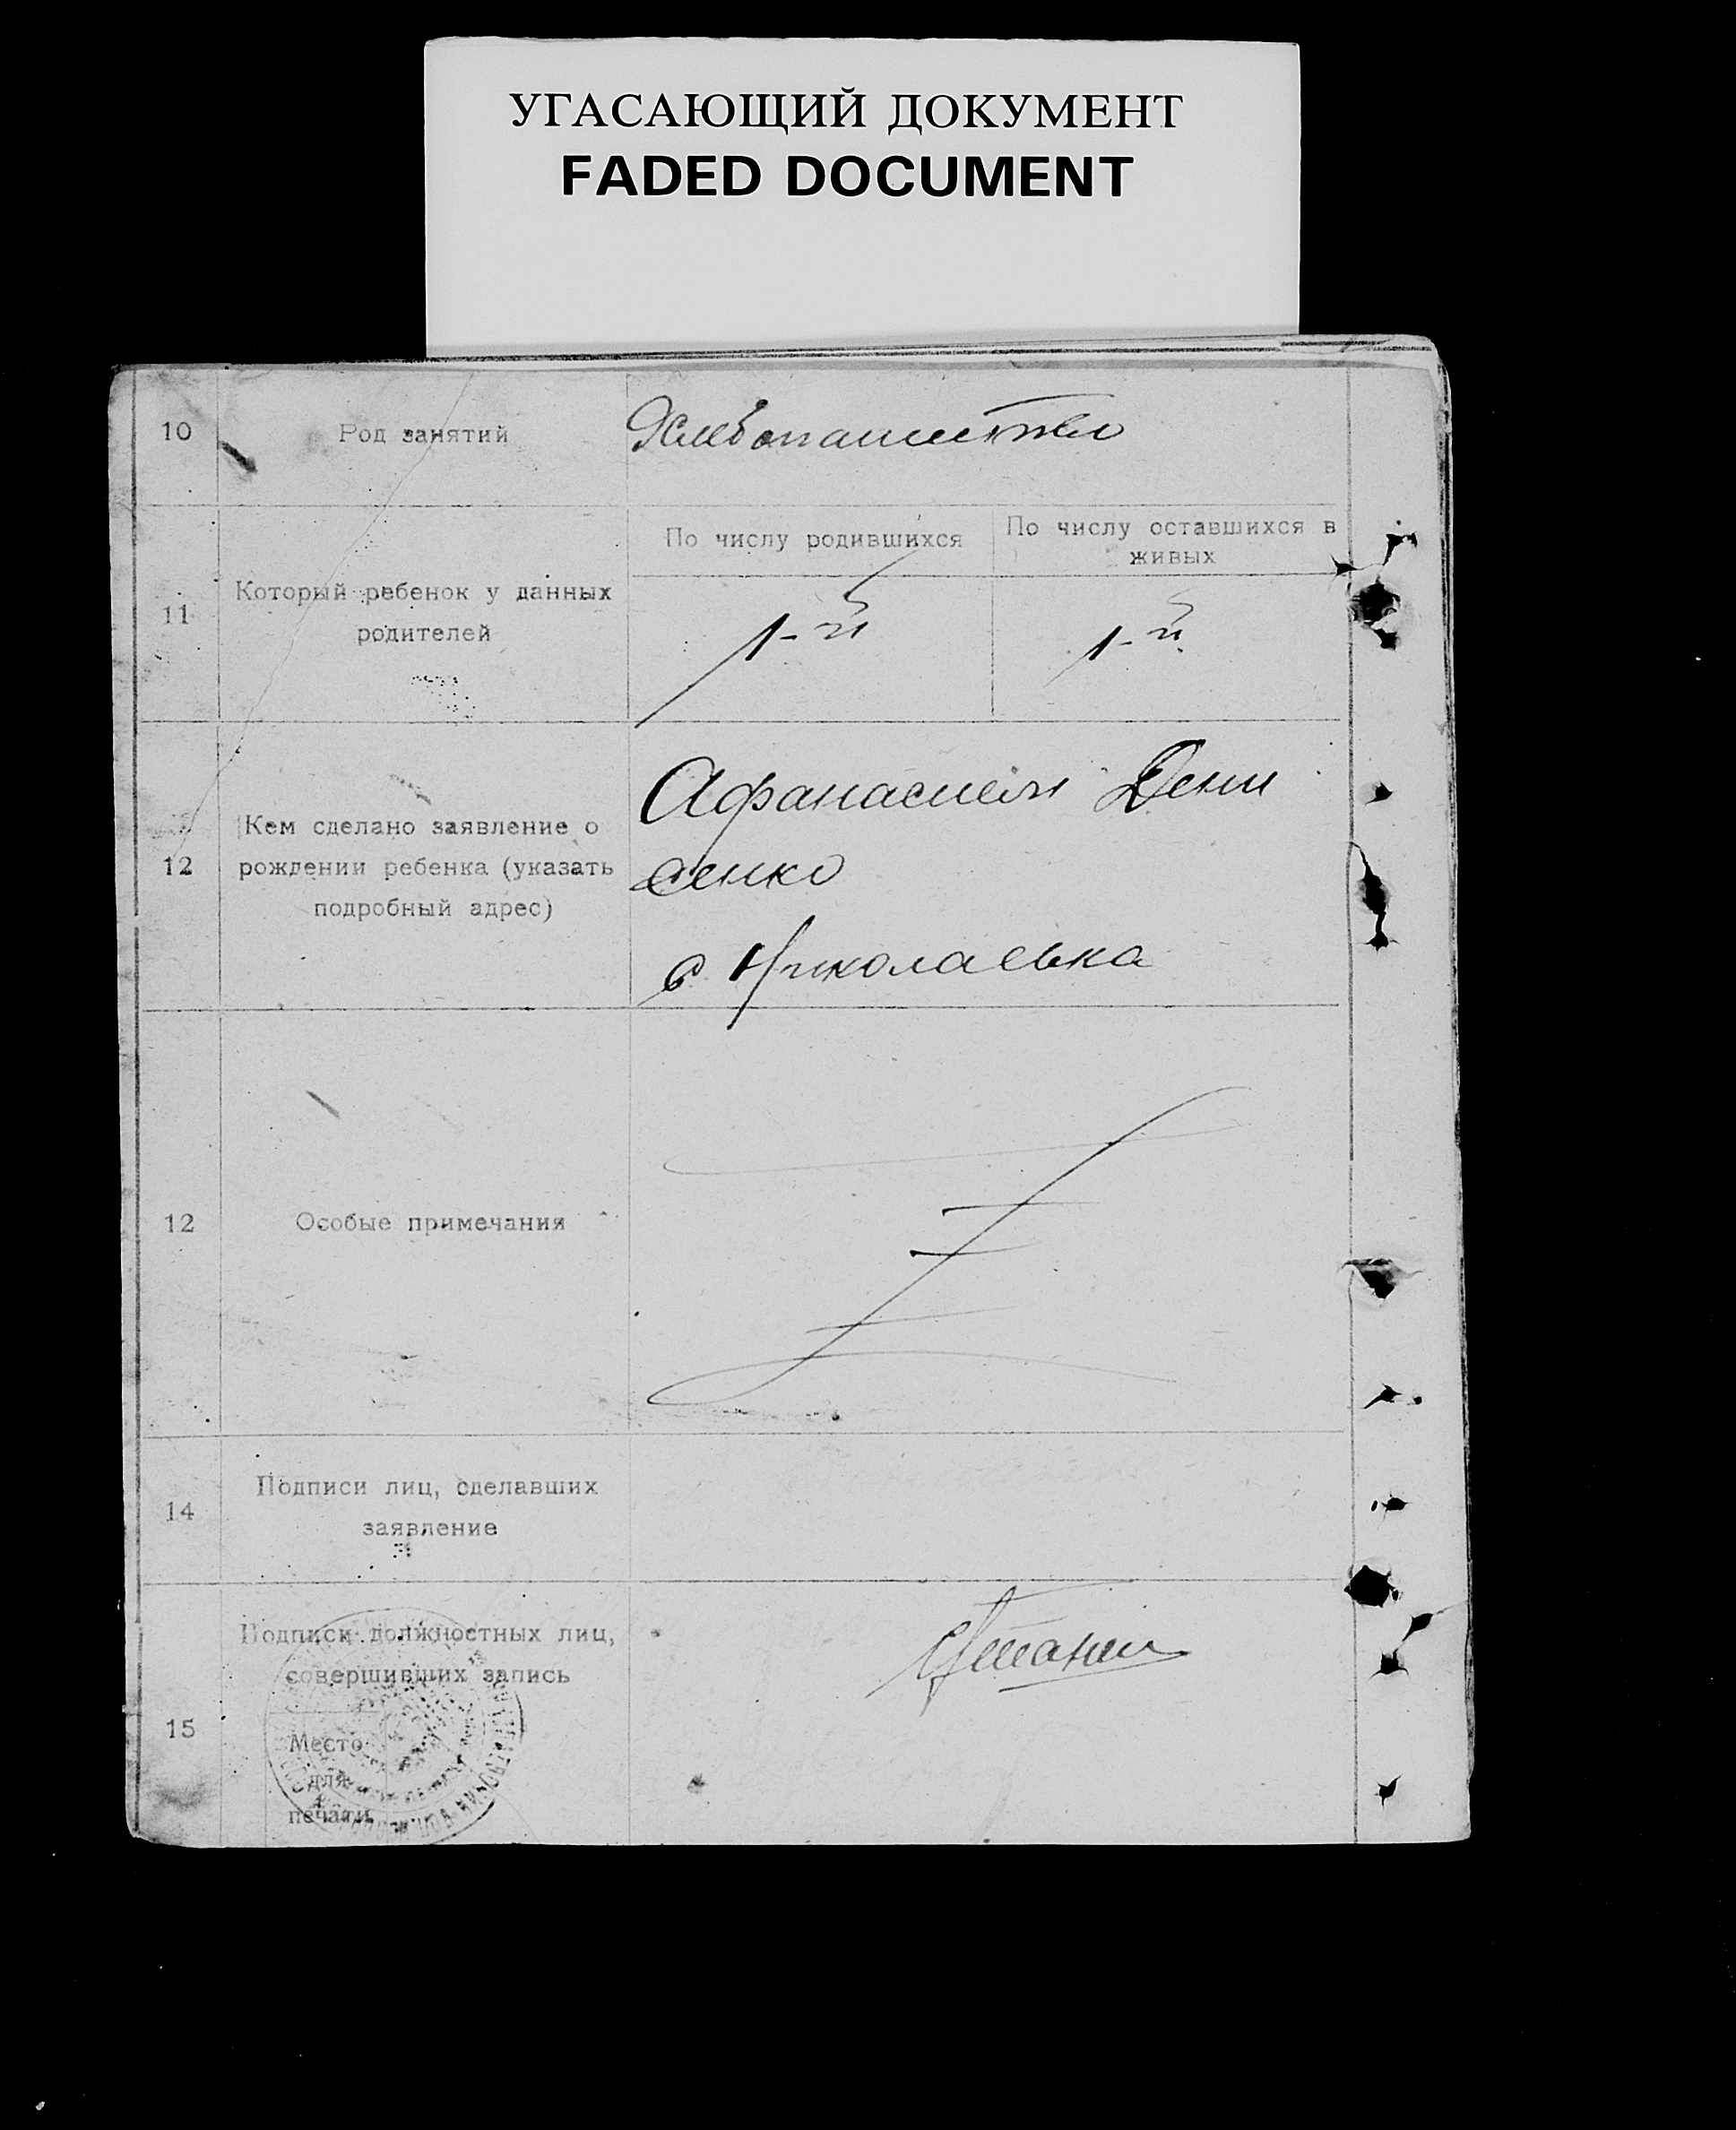 УГАСАЮЩИЙ ДОКУМЕНТ
FADED DOCUMENT
10 Род занятий Хлебопашество
11 Который ребенок у данных родителей
По числу родившихся
По числу оставшихся в живых
1-й
1-й
12 Кем сделано заявление о
рождении ребенка (указать
подробный адрес)
Афанасием Дени
сенко
с Николаевка
12 Особые примечания
14 Подписи лиц, сделавших
заявление
15 Подписи должностных лиц,
совершивших запись
Место
для
печати